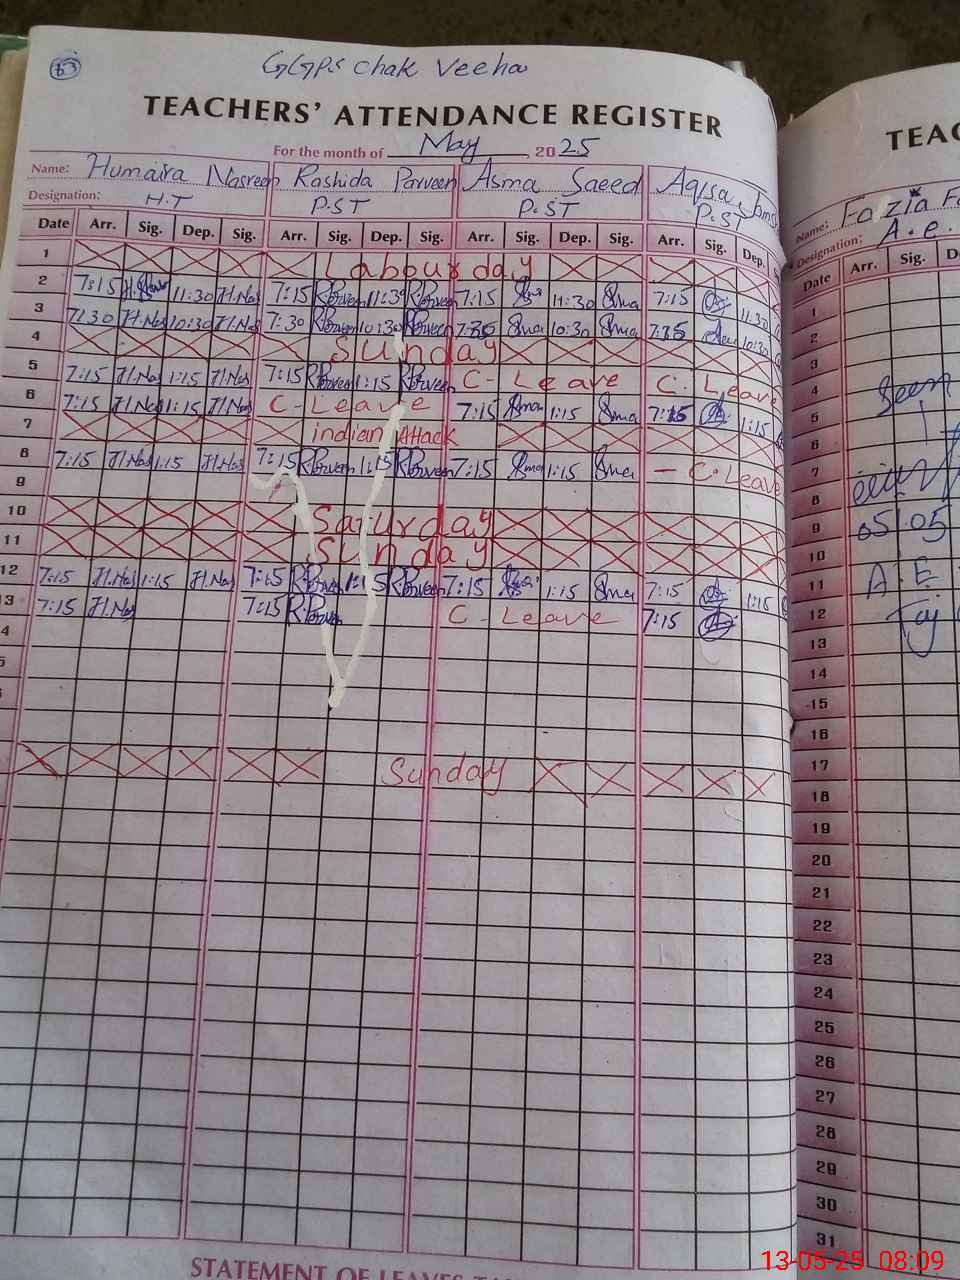 63
GGPS chak Veeha
TEACHERS' ATTENDANCE REGISTER
For the month of May, 2025
Name: Humaira Nasreen Rashida Parveen Asma Saeed Aqsa
Designation: H.T P.ST P.ST P.ST
Date Arr. Sig. Dep. Sig. Arr. Sig. Dep. Sig. Arr. Sig. Dep. Sig. Arr. Sig. Dep.
1 Labour day
2 7:15 11:30 H.Nas 7:15 R.Parveen 11:30 R.Parveen 7:15 11:30 Asma 7:15 11:30
3 7:30 H.Nas 10:30 H.Nas 7:30 R.Parveen 10:30 R.Parveen 10:30 Asma 10:30
4 Sunday
5 7:15 H.Nas 1:15 H.Nas 7:15 R.Parveen 1:15 R.Parveen C-Leave C.Leave
6 7:15 H.Nas 1:15 H.Nas C-Leave 7:15 Asma 1:15 Asma 7:15 1:15
7 indian Attack
8 7:15 H.Nas 1:15 H.Nas 7:15 R.Parveen 1:15 R.Parveen 7:15 Asma 1:15 Asma - C.Leave
9
10 Saturday
11 Sunday
12 7:15 H.Nas 1:15 H.Nas 7:15 R.Parveen 1:15 R.Parveen 7:15 1:15 Asma 7:15 1:15
13 7:15 H.Nas 7:15 R.Parveen C-Leave 7:15
4
5
Sunday
STATEMENT OF LEAVES
TEAC
Name: Fozia
Designation: A.e.
Date Arr. Sig.
1
2
3
4 Seen
5
6
7
8
9 05.05
10
11 A.E
12 Taj
13
14
15
16
17
18
19
20
21
22
23
24
25
26
27
28
29
30
31
13-05-25 08:09